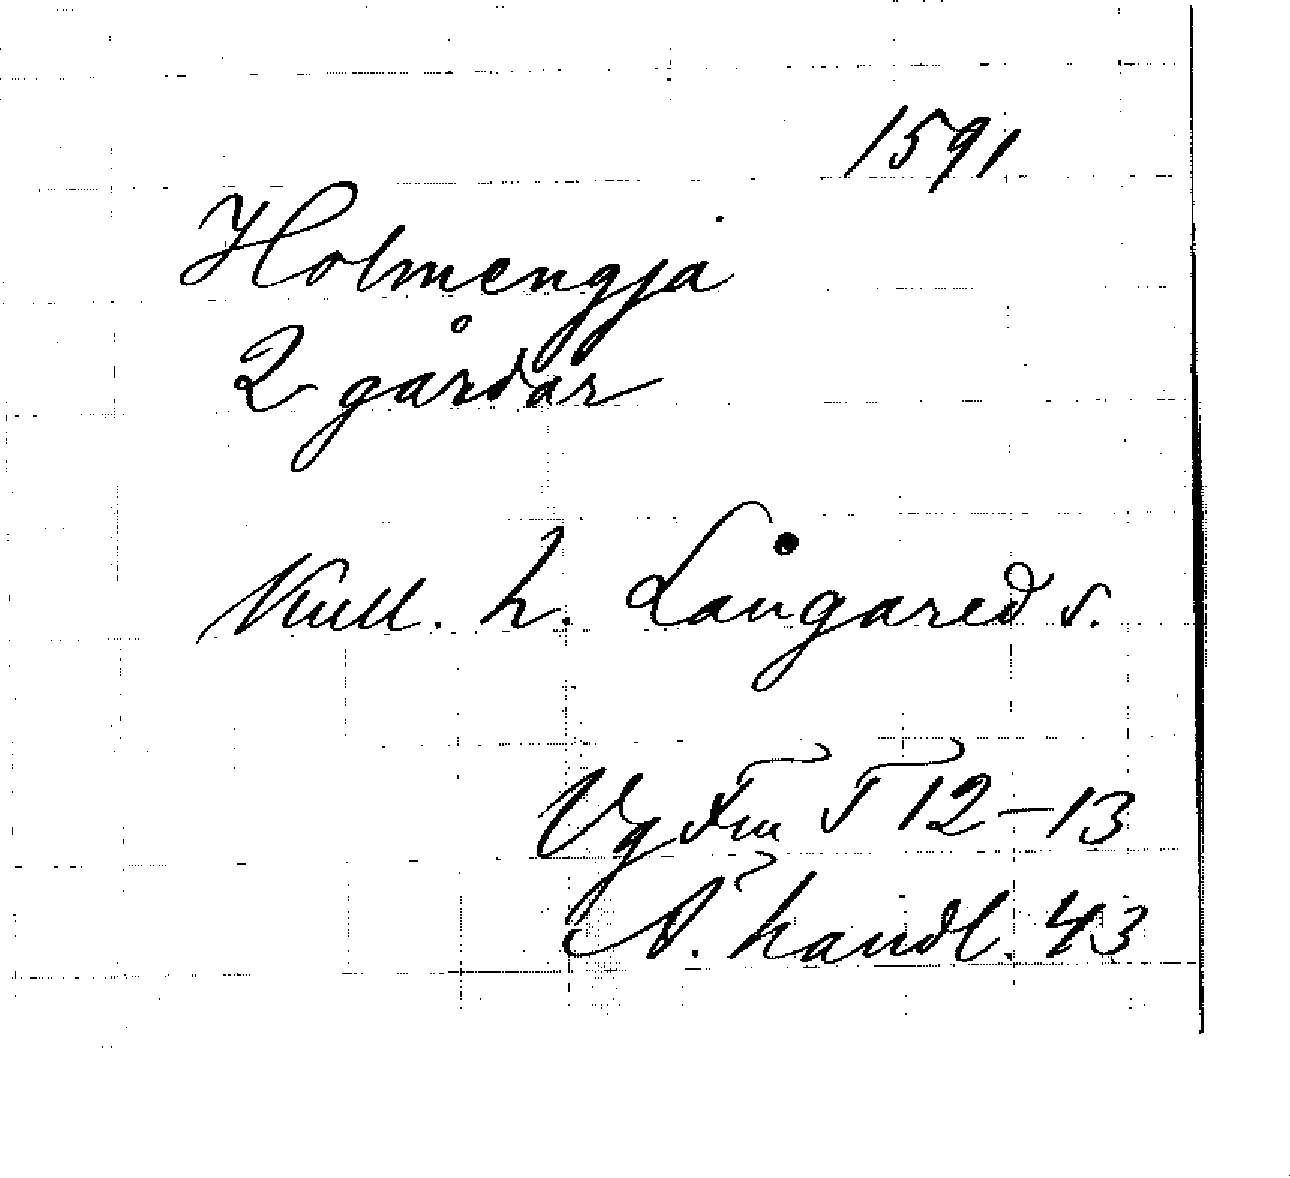 1591
Holmengja
2 gårdar
Kull. h. Långared s.
Vg Fm I 12-13
Å. handl. 43